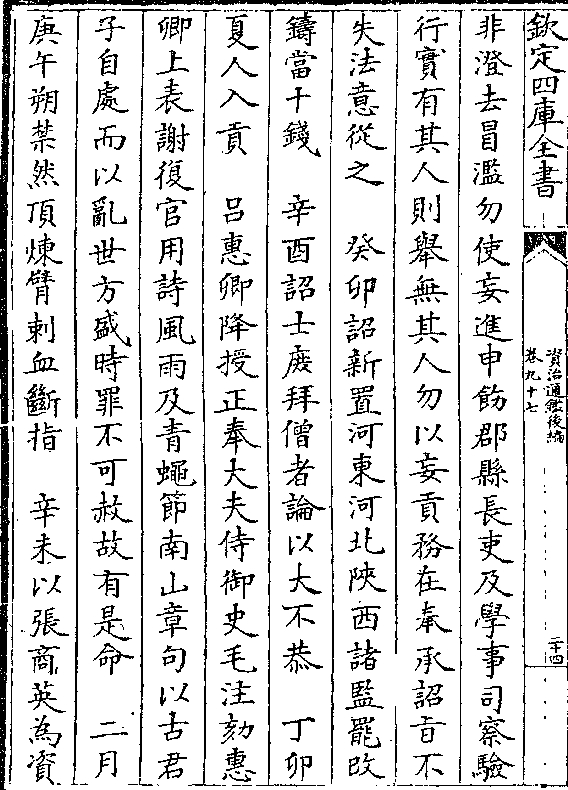 欽定四庫全書
資治通鑑後編
卷九十七
二十四
非澄去冒濫勿使妄進申飭郡縣長吏及學事司察驗
行實有其人則舉無其人勿以妄貢務在奉承詔㫖不
失法意從之　癸卯詔新置河東河北陜西諸監罷改
鑄當十錢　辛酉詔士庻拜僧者論以大不恭　丁卯
夏人入貢　呂惠卿降授正奉大夫侍御史毛注劾惠
卿上表謝復官用詩風雨及青蠅節南山章句以古君
子自處而以亂世方盛時罪不可赦故有是命　二月
庚午朔禁然頂煉臂刺血斷指　辛未以張商英為資